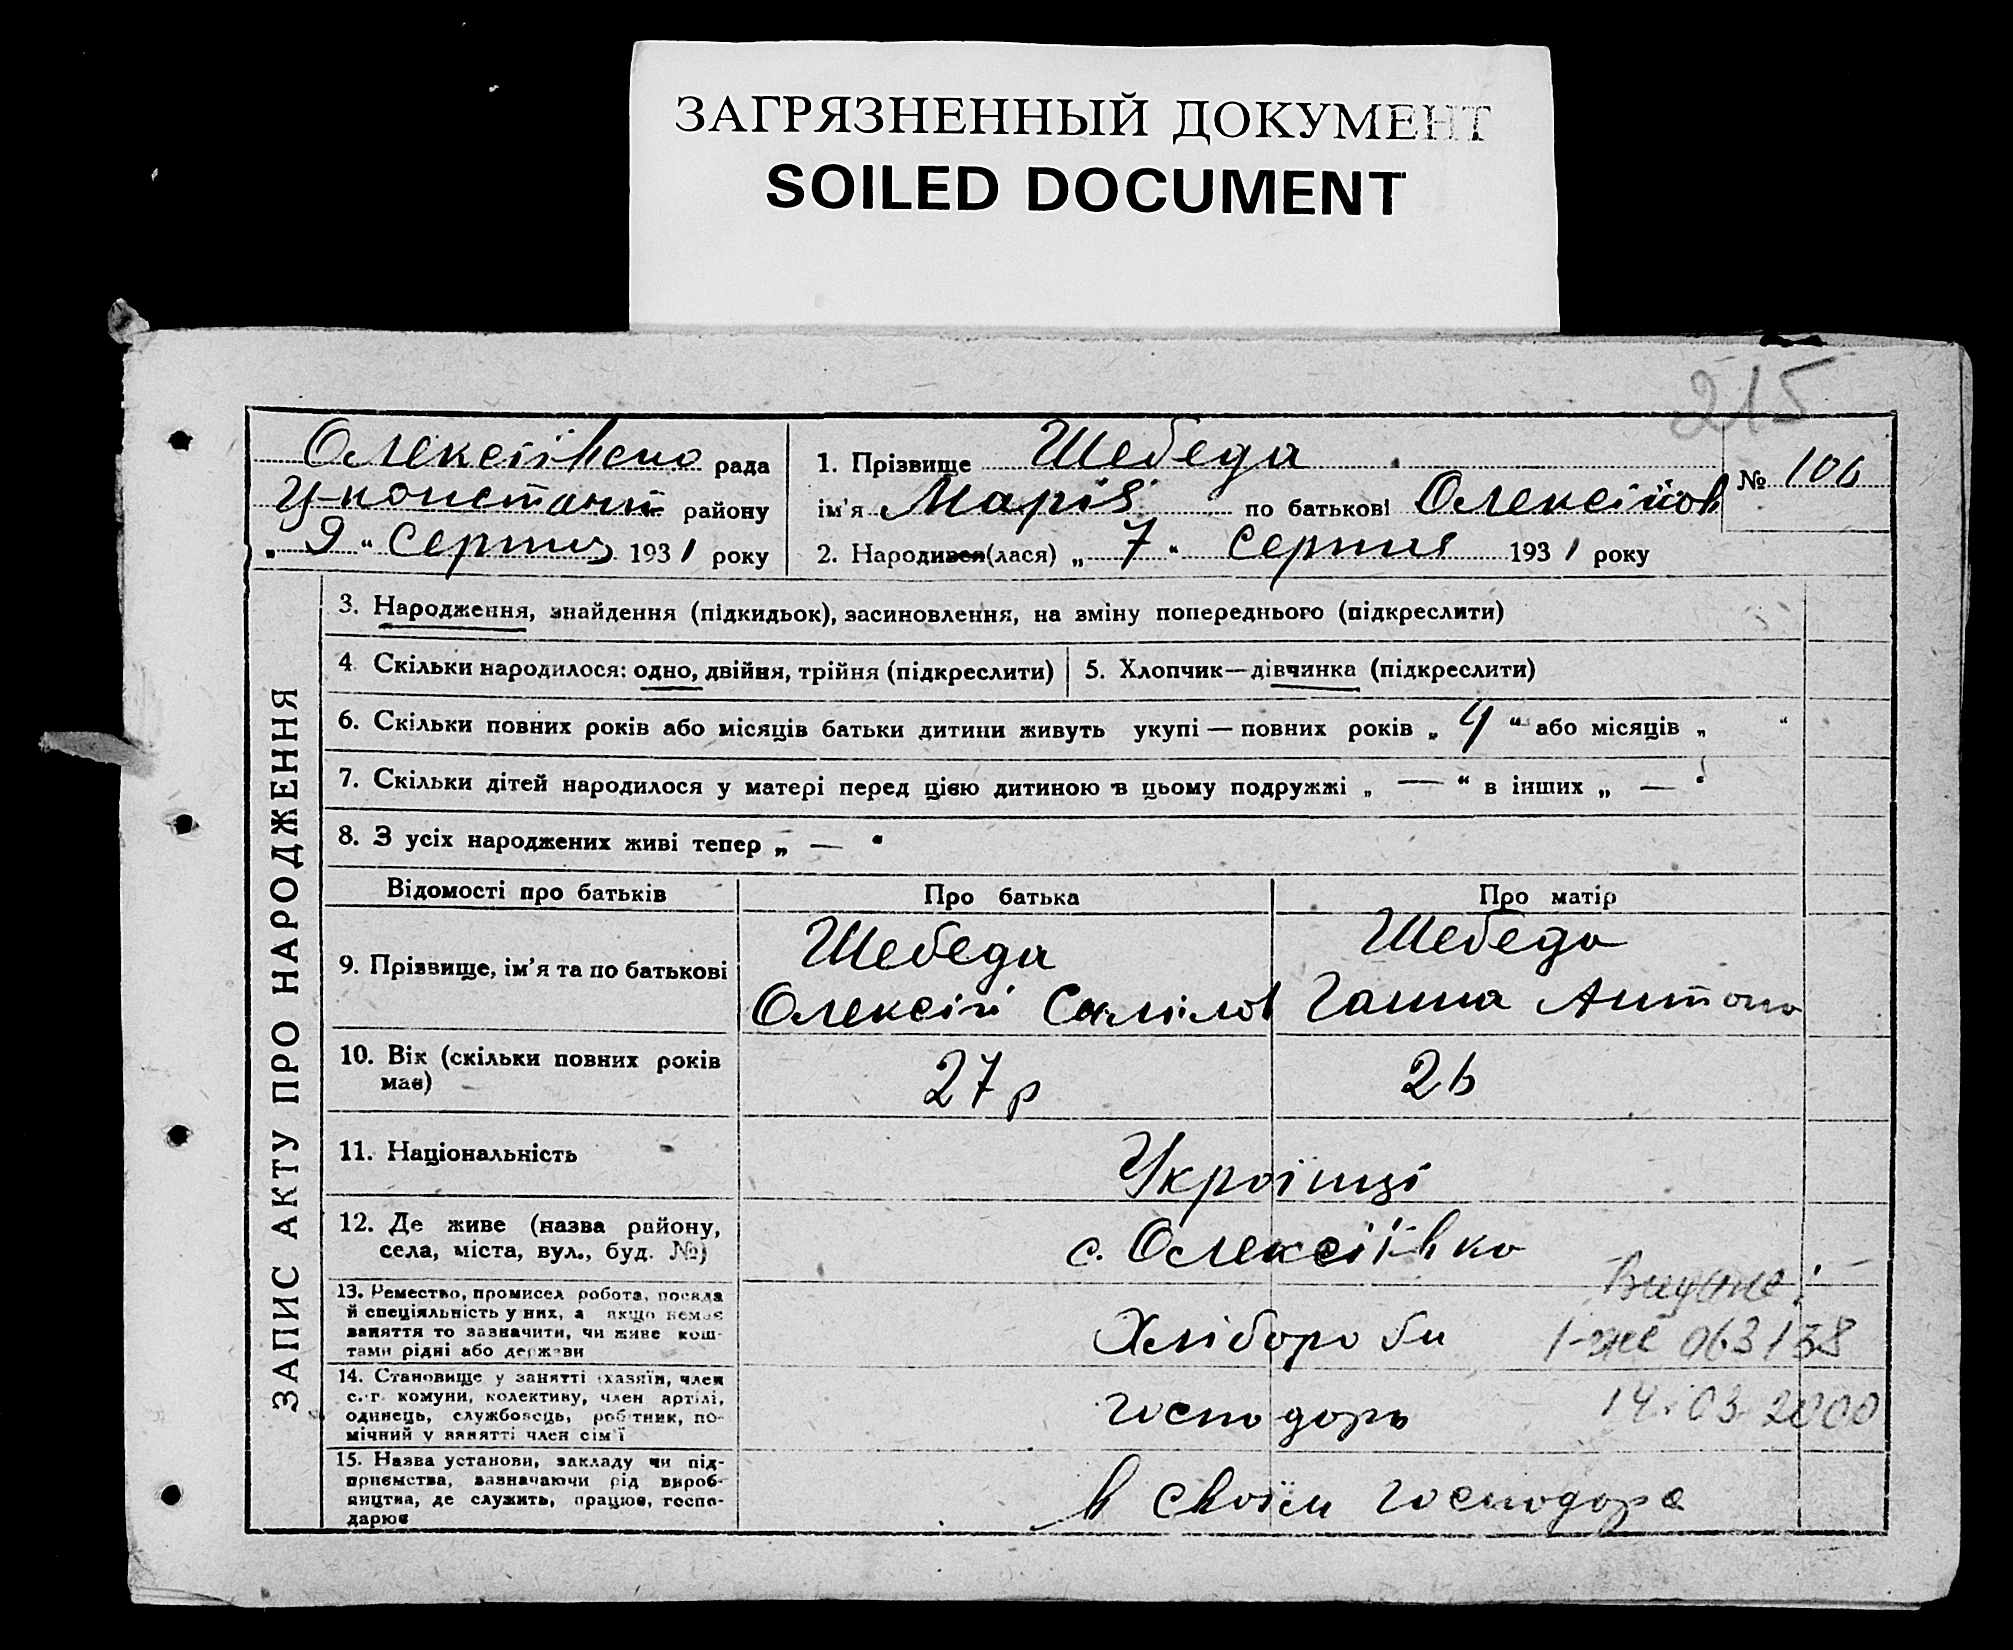 ЗАГРЯЗНЕННЫЙ ДОКУМЕНТ
SOILED DOCUMENT
215
Олексіївсько рада
району
"9" Серпня 1931 року
1. Прізвище Шебеда
ім'я Марія по батькові Олексійов
2. Народився(лася) „7“ Серпня 1931 року
№ 106
ЗАПИС АКТУ ПРО НАРОДЖЕННЯ
3. Народження, знайдення (підкидьок), засиновлення, на зміну попереднього (підкреслити)
4 Скільки народилося: одно, двійня, трійня (підкреслити)
5. Хлопчик—дівчинка (підкреслити)
6. Скільки повних років або місяців батьки дитини живуть укупі — повних років „4“ або місяців „ “
7. Скільки дітей народилося у матері перед цією дитиною в цьому подружжі „ — “ в інших „ — “
8. З усіх народжених живі тепер „ — “
Відомості про батьків
Про батька
Про матір
9. Прізвище, ім'я та по батькові
Шебеда
Олексій
Шебеда
Ганна Антоно
10. Вік (скільки повних років
має)
27 р
26
11. Національність
Українці
12. Де живе (назва району,
села, міста, вул., буд. №)
с. Олексіївка
13. Ремество, промисел робота, посада
й спеціяльність у них, а якщо немає
заняття то зазначити, чи живе кош-
тами рідні або держави
Хлібороби
14. Становище у занятті (хазяїн, член
с.-г. комуни, колективу, член артілі,
одинець, службовець, робітник, по-
мічний у занятті член сім'ї
господарь
15. Назва установи, закладу чи під-
приємства, зазначаючи рід вироб-
ництва, де служить, працює, госпо-
дарює
в своїм господарс
Видано:
1-же 063138
14.03.2000